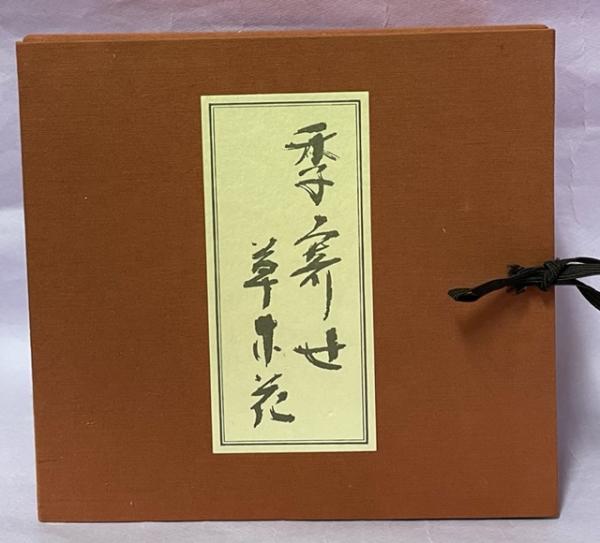 季寄せ
草木花